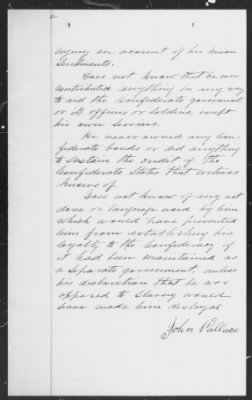 injury on account of his union
Sentiments.
Does not know that he ever
contributed anything in any way
to aid the Confederate government
or its officers or soldiers, except
his own Service.
He never owned any Con-
federate bonds or did anything
to sustain the credit of the
Confederate States that witness
knows of
Does not know of any act
done or language used by him
which would have prevented
him from establishing his
loyalty to the Confederacy if
it had been maintained as
a separate government, unless
his declaration that he was
opposed to Slavery would
have made him disloyal
John Wallace